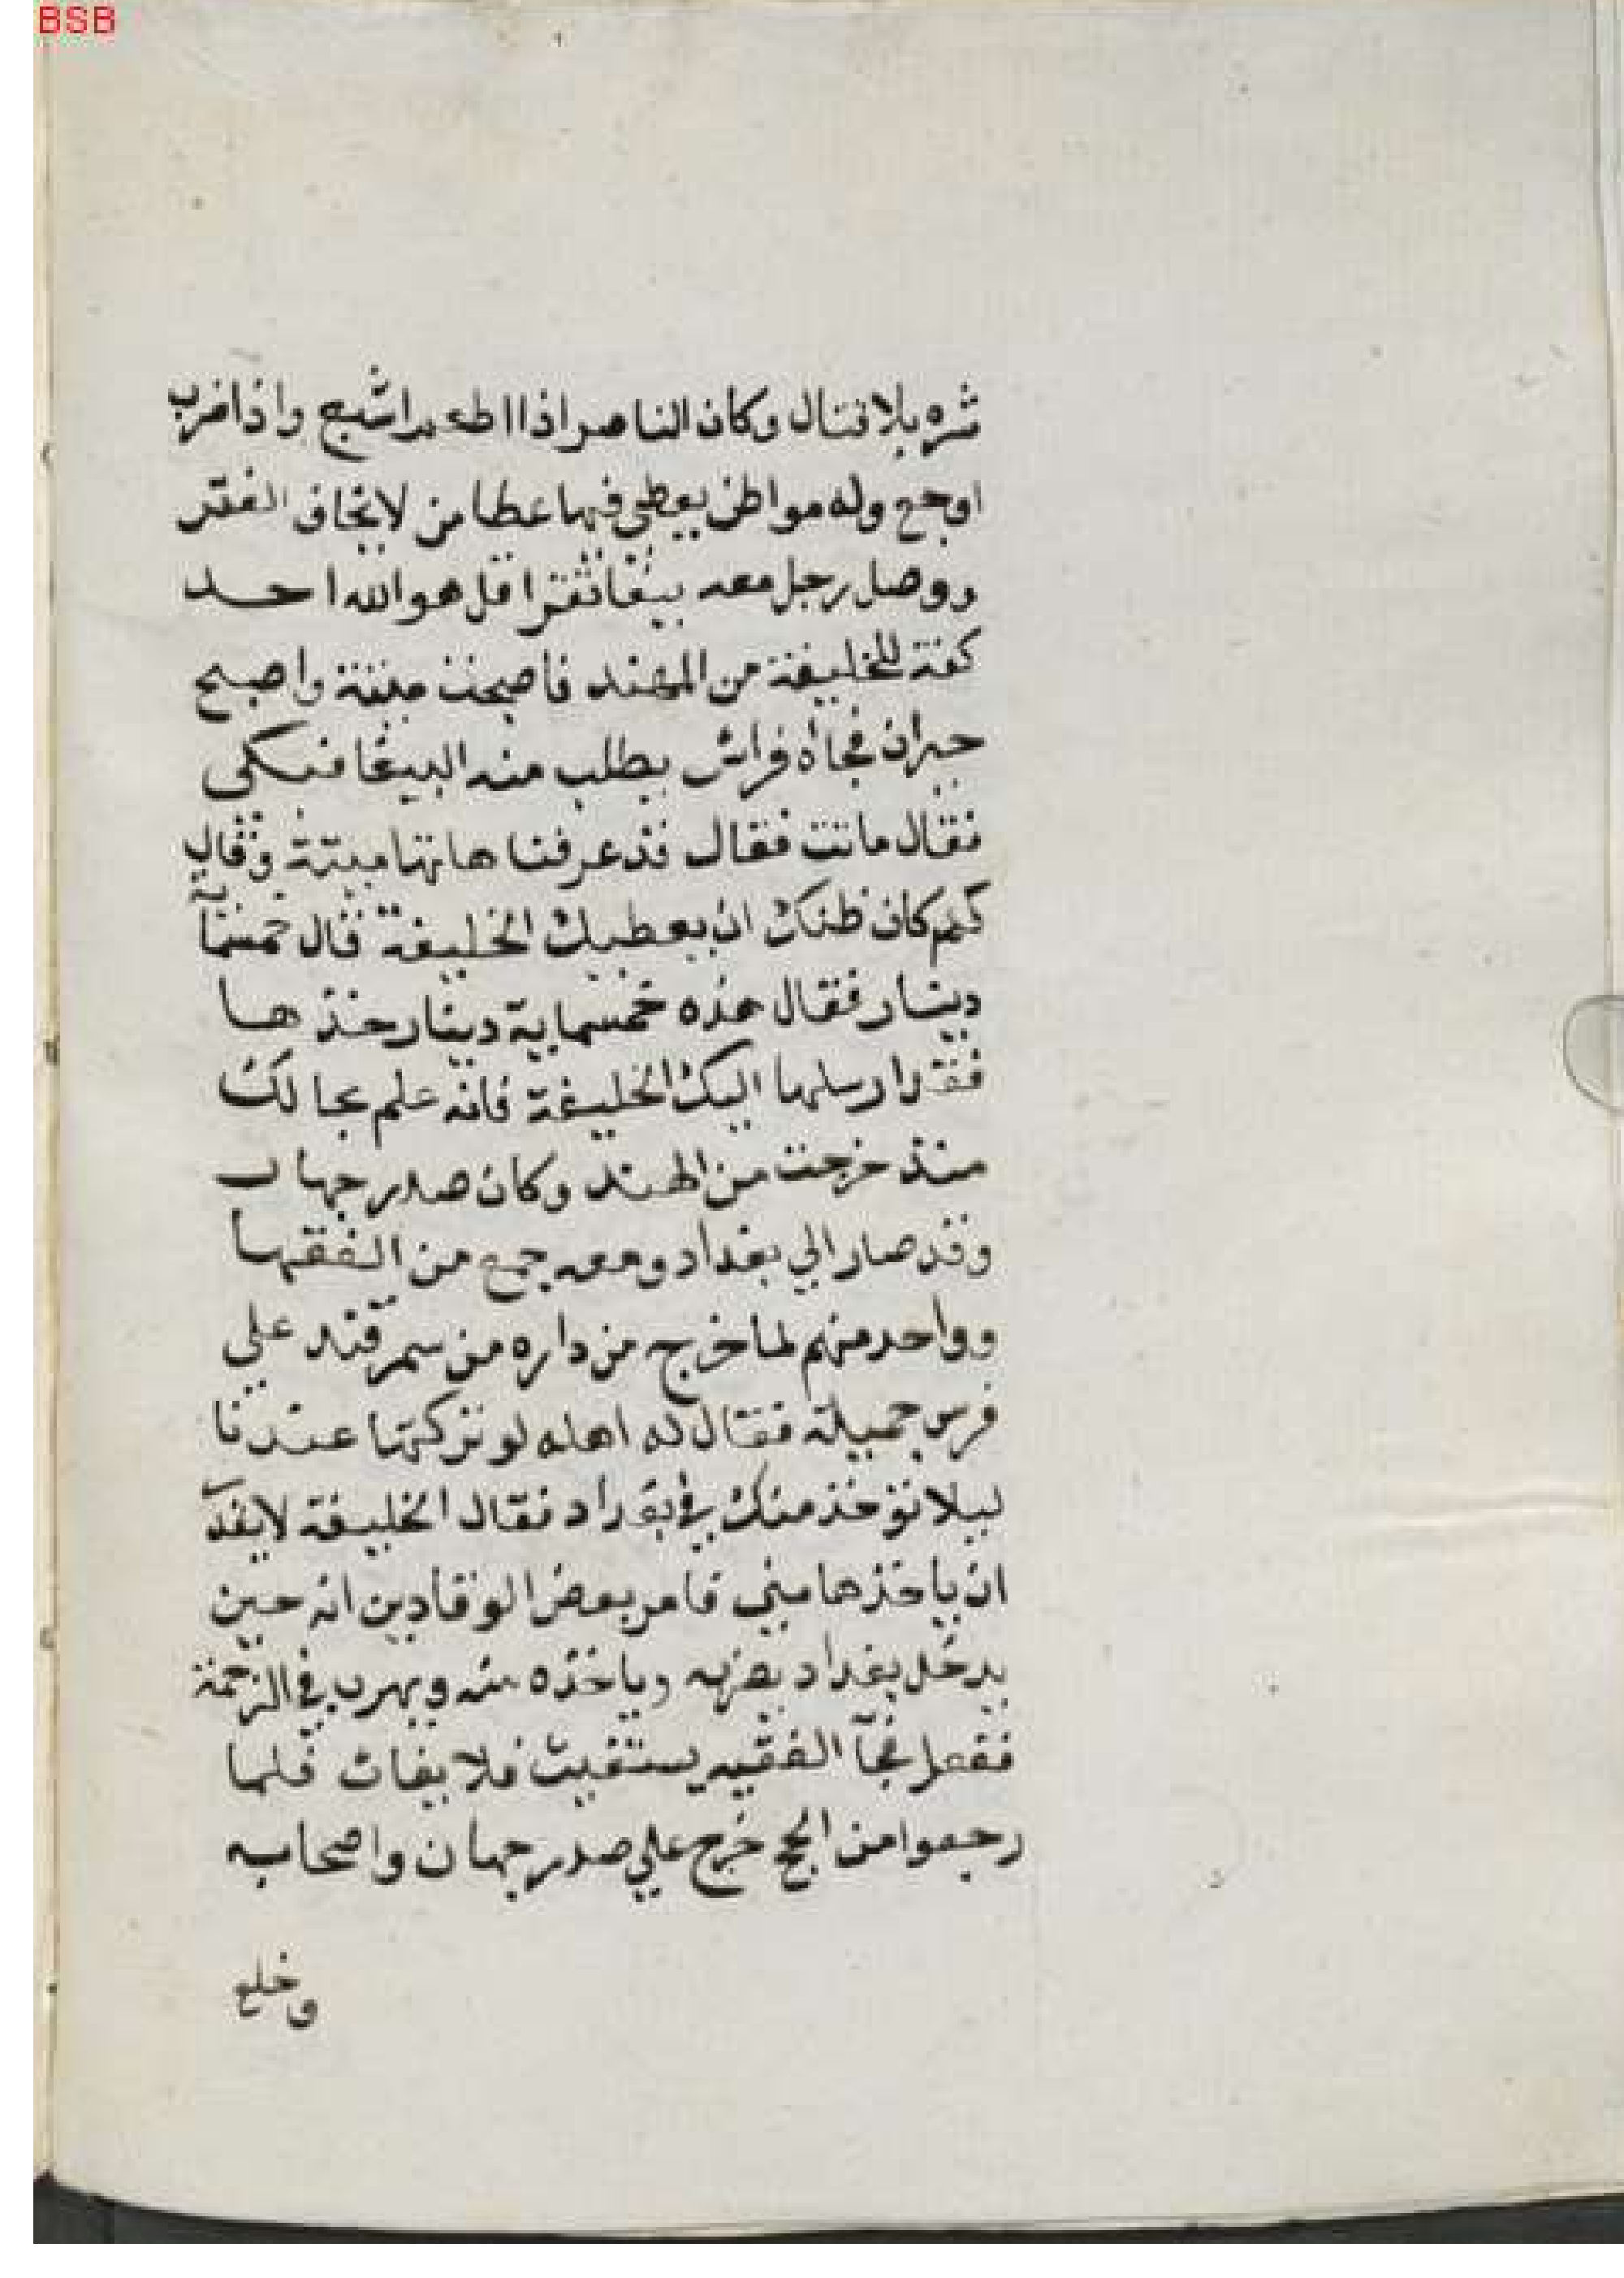 BSB
شره بلا قتال وكان الناصر اذا اطعم اشبع واذا ضرب
اوجع وله مواطن يعطي فيها عطا من لا يخاف الفقر
ووصل رجل معه ببغا تقرا قل هو الله احد
للخليفة من الهند فاصبحت ميتة واصبح
حيران فجاه فراش يطلب منه الببغا فبكى
فقال ماتت فقال قد عرفنا هاتها ميتة وقال
كم كان ظنك ان يعطيك الخليفة قال خمسمآ
دينار فقال هذه خمسماية دينار خذها
فقد ارسلها اليك الخليفة فانه علم بحالك
منذ خرجت من الهند وكان صدر جهان
وقد صار الي بغداد ومعه جمع من الفقها
وواحد منهم لما خرج من داره من سمرقند علي
فرس جميلة فقال له اهله لو تركتها عندنا
ليلا توخذ منك في بغداد فقال الخليفة لا يقد
ان ياخذها مني فامر بعض الوقادين انه حين
يدخل بغداد يضربه وياخذه منه ويهرب في الزحمة
ففعل فجآ الفقيه يستغيث فلا يغاث فلما
رجعوا من الحج خرج علي صدر جهان واصحابه
وخلع